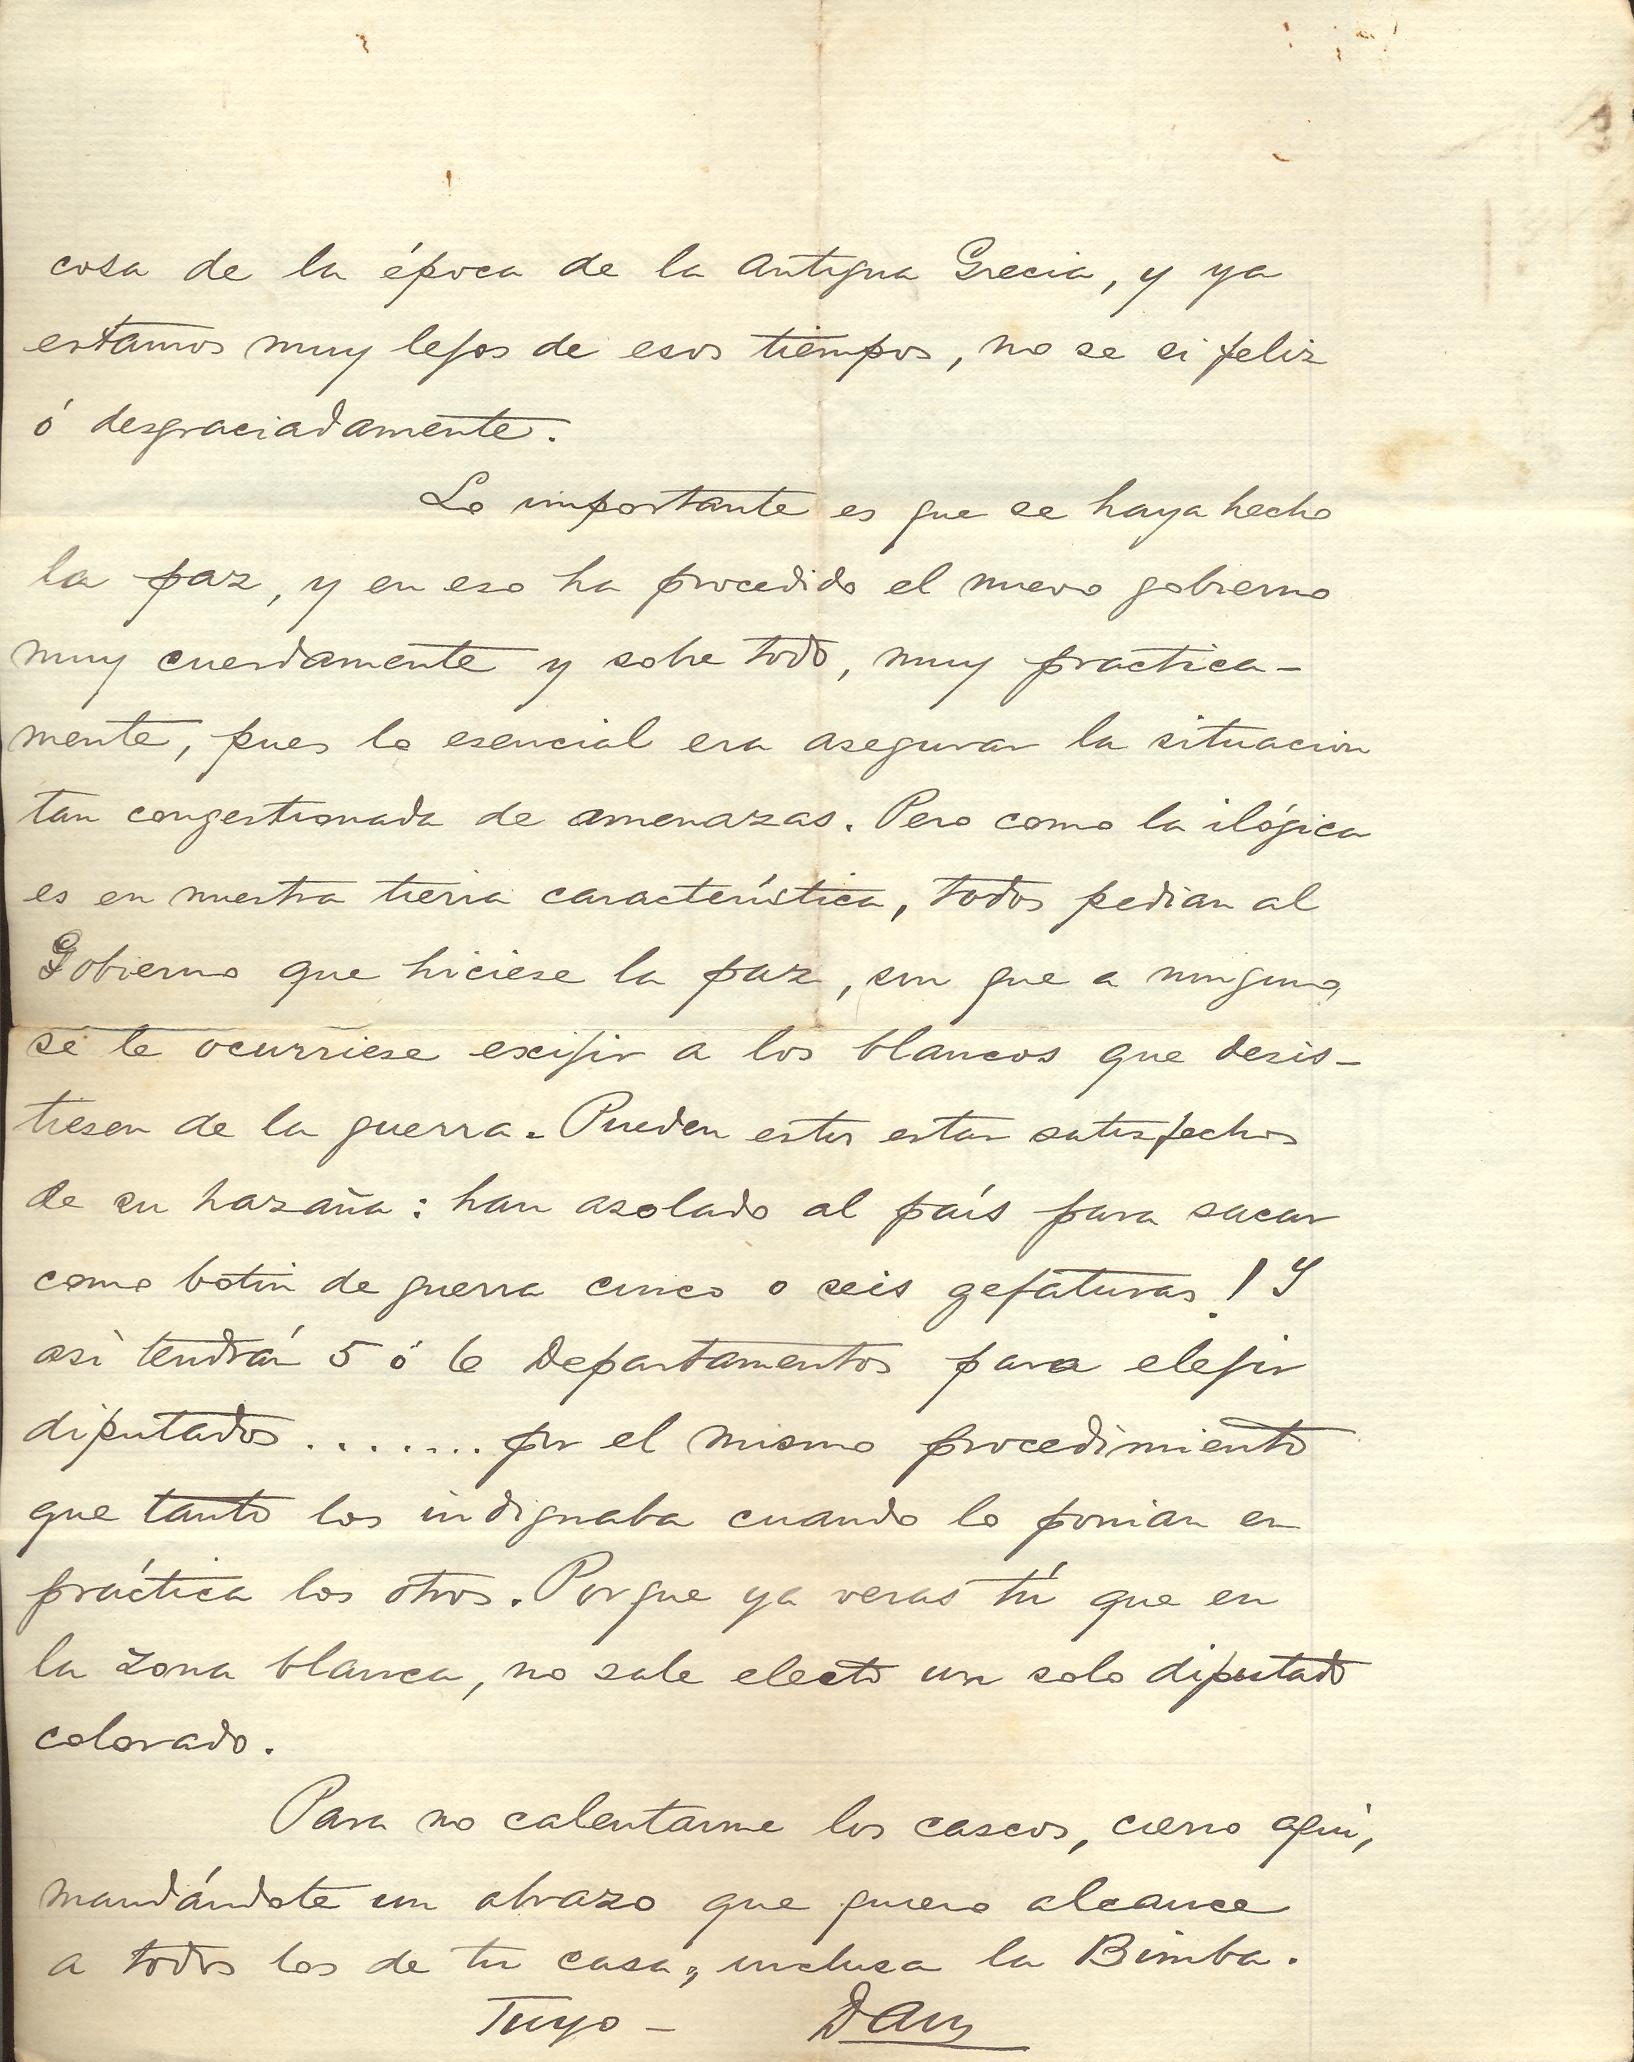 cosa de la época de la Antigua Grecia, y ya
estamos muy lejos de esos tiempos, no se si feliz
ó desgraciadamente.
Lo importante es que se haya hecho
la paz, y en eso ha procedido el nuevo gobierno
muy cuerdamente y sobre todo, muy practica-
mente, pues lo esencial era asegurar la situacion
tan congestionada de amenazas. Pero como la ilógica
es en nuestra tierra característica, todos pedian al
Gobierno que hiciese la paz, sin que a ninguno
se le ocurriese exijir a los blancos que desis-
tiesen de la guerra. Pueden estos estar satisfechos
de su hazaña: han asolado al país para sacar
como botin de guerra cinco o seis gefaturas! Y
asi tendrán 5 ó 6 Departamentos para elejir
diputados........por el mismo procedimiento
que tanto los indignaba cuando lo ponian en
práctica los otros. Porque ya veras tú que en
la zona blanca, no sale electo un solo diputado
colorado.
Para no calentarme los cascos, cierro aqui,
mandándote un abrazo que quiero alcance
a todos los de tu casa, inclusa la Bimba.
Tuyo -